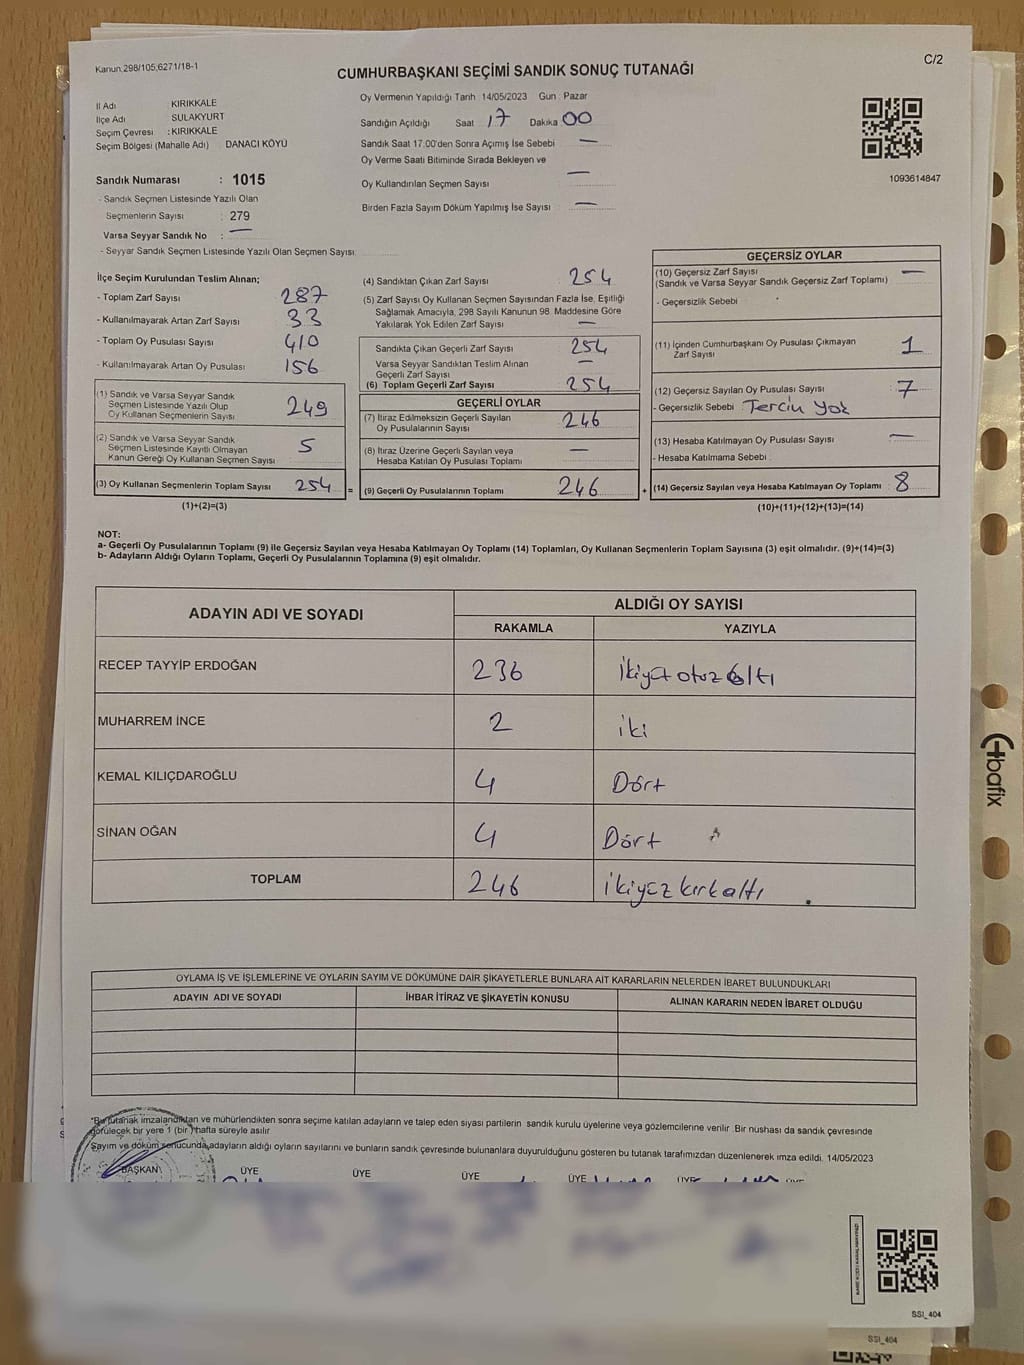 Kanun:298/105;6271/18-1
C/2
CUMHURBAŞKANI SEÇİMİ SANDIK SONUÇ TUTANAĞI
İl Adı KIRIKKALE
İlçe Adı SULAKYURT
Seçim Çevresi : KIRIKKALE
Seçim Bölgesi (Mahalle Adı) DANACI KÖYÜ
Oy Vermenin Yapıldığı Tarih 14/05/2023 Gün : Pazar
Sandığın Açıldığı Saat 17 Dakika 00
Sandık Saat 17.00'den Sonra Açımış İse Sebebi —
Oy Verme Saati Bitiminde Sırada Bekleyen ve
Oy Kullandırılan Seçmen Sayısı —
Birden Fazla Sayım Döküm Yapılmış İse Sayısı —
1093614847
Sandık Numarası : 1015
- Sandık Seçmen Listesinde Yazılı Olan
Seçmenlerin Sayısı : 279
Varsa Seyyar Sandık No : —
- Seyyar Sandık Seçmen Listesinde Yazılı Olan Seçmen Sayısı
İlçe Seçim Kurulundan Teslim Alınan;
- Toplam Zarf Sayısı 287
- Kullanılmayarak Artan Zarf Sayısı 33
- Toplam Oy Pusulası Sayısı 410
- Kullanılmayarak Artan Oy Pusulası 156
(1) Sandık ve Varsa Seyyar Sandık
Seçmen Listesinde Yazılı Olup
Oy Kullanan Seçmenlerin Sayısı 249
(2) Sandık ve Varsa Seyyar Sandık
Seçmen Listesinde Kayıtlı Olmayan
Kanun Gereği Oy Kullanan Seçmen Sayısı 5
(3) Oy Kullanan Seçmenlerin Toplam Sayısı 254 =
(1)+(2)=(3)
(4) Sandıktan Çıkan Zarf Sayısı 254
(5) Zarf Sayısı Oy Kullanan Seçmen Sayısından Fazla İse, Eşitliği
Sağlamak Amacıyla, 298 Sayılı Kanunun 98. Maddesine Göre
Yakılarak Yok Edilen Zarf Sayısı —
Sandıkta Çıkan Geçerli Zarf Sayısı 254
Varsa Seyyar Sandıktan Teslim Alınan
Geçerli Zarf Sayısı —
(6) Toplam Geçerli Zarf Sayısı 254
GEÇERLİ OYLAR
(7) İtiraz Edilmeksizin Geçerli Sayılan
Oy Pusulalarının Sayısı 246
(8) İtiraz Üzerine Geçerli Sayılan veya
Hesaba Katılan Oy Pusulası Toplamı —
(9) Geçerli Oy Pusulalarının Toplamı 246 +
GEÇERSİZ OYLAR
(10) Geçersiz Zarf Sayısı —
(Sandık ve Varsa Seyyar Sandık Geçersiz Zarf Toplamı)
- Geçersizlik Sebebi
(11) İçinden Cumhurbaşkanı Oy Pusulası Çıkmayan
Zarf Sayısı 1
(12) Geçersiz Sayılan Oy Pusulası Sayısı 7
- Geçersizlik Sebebi Tercih Yok
(13) Hesaba Katılmayan Oy Pusulası Sayısı —
- Hesaba Katılmama Sebebi
(14) Geçersiz Sayılan veya Hesaba Katılmayan Oy Toplamı : 8
(10)+(11)+(12)+(13)=(14)
NOT:
a- Geçerli Oy Pusulalarının Toplamı (9) ile Geçersiz Sayılan veya Hesaba Katılmayan Oy Toplamı (14) Toplamları, Oy Kullanan Seçmenlerin Toplam Sayısına (3) eşit olmalıdır. (9)+(14)=(3)
b- Adayların Aldığı Oyların Toplamı, Geçerli Oy Pusulalarının Toplamına (9) eşit olmalıdır.
ADAYIN ADI VE SOYADI ALDIĞI OY SAYISI
RAKAMLA YAZIYLA
RECEP TAYYİP ERDOĞAN 236 ikiyüz otuz altı
MUHARREM İNCE 2 iki
KEMAL KILIÇDAROĞLU 4 Dört
SİNAN OĞAN 4 Dört
TOPLAM 246 ikiyüz kırkaltı
OYLAMA İŞ VE İŞLEMLERİNE VE OYLARIN SAYIM VE DÖKÜMÜNE DAİR ŞİKAYETLERLE BUNLARA AİT KARARLARIN NELERDEN İBARET BULUNDUKLARI
ADAYIN ADI VE SOYADI İHBAR İTİRAZ VE ŞİKAYETİN KONUSU ALINAN KARARIN NEDEN İBARET OLDUĞU
*Bu tutanak imzalandıktan ve mühürlendikten sonra seçime katılan adayların ve talep eden siyasi partilerin sandık kurulu üyelerine veya gözlemcilerine verilir. Bir nüshası da sandık çevresinde
görülecek bir yere 1 (bir) hafta süreyle asılır.
Sayım ve döküm sonucunda,adayların aldığı oyların sayılarını ve bunların sandık çevresinde bulunanlara duyurulduğunu gösteren bu tutanak tarafımızdan düzenlenerek imza edildi. 14/05/2023
BAŞKAN ÜYE ÜYE ÜYE ÜYE ÜYE ÜYE
SSI_404
SSI_404
bafix